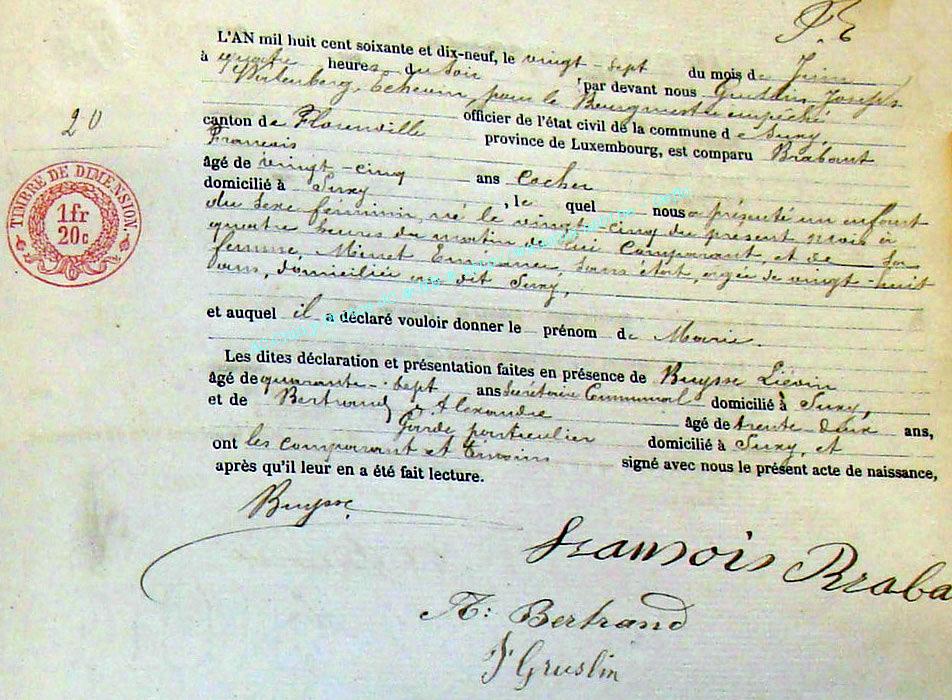 L'AN mil huit cent soixante et dix-neuf, le vingt-sept du mois de Juin
à quatre heures du Soir par devant nous Joseph
Echevin, pour le Bourgmestre empêché
20
canton de Florenville officier de l'état civil de la commune de Suxy,
Francois province de Luxembourg, est comparu Brabant
âgé de vingt-cinq ans Cocher
domicilié à Suxy, le quel nous a présenté un enfant
du sexe féminin, né le vingt-cinq du présent mois à
quatre heures du matin de lui Comparant, et de sa
femme, Minet, sans état, agée de vingt-huit
ans, domiciliée au dit Suxy,
et auquel il a déclaré vouloir donner le prénom de Marie.
Les dites déclaration et présentation faites en présence de Buysse Liévin
âgé de quarante-sept ans Secrétaire Communal domicilié à Suxy,
et de Bertrand Alexandre âgé de trente deux ans,
Garde particulier domicilié à Suxy, et
ont les comparant et témoins signé avec nous le présent acte de naissance,
après qu'il leur en a été fait lecture.
TIMBRE DE DIMENSION
1fr
20c
Buysse
Fransois Braba
A: Bertrand
J Gruslin